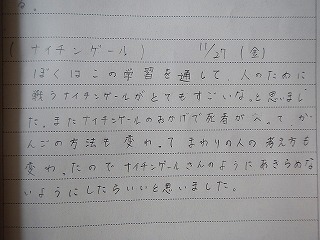 る。
(ナイチンゲール) 11/27 (金)
ぼくはこの学習を通して、人のために
戦うナイチンゲールがとてもすごいなっと思いまし
た。またナイチンゲールのおかげで死者がへって、か
んごの方法も変わってまわりの人の考え方も
変わったのでナイチンゲールさんのようにあきらめな
いようにしたらいいと思いました。